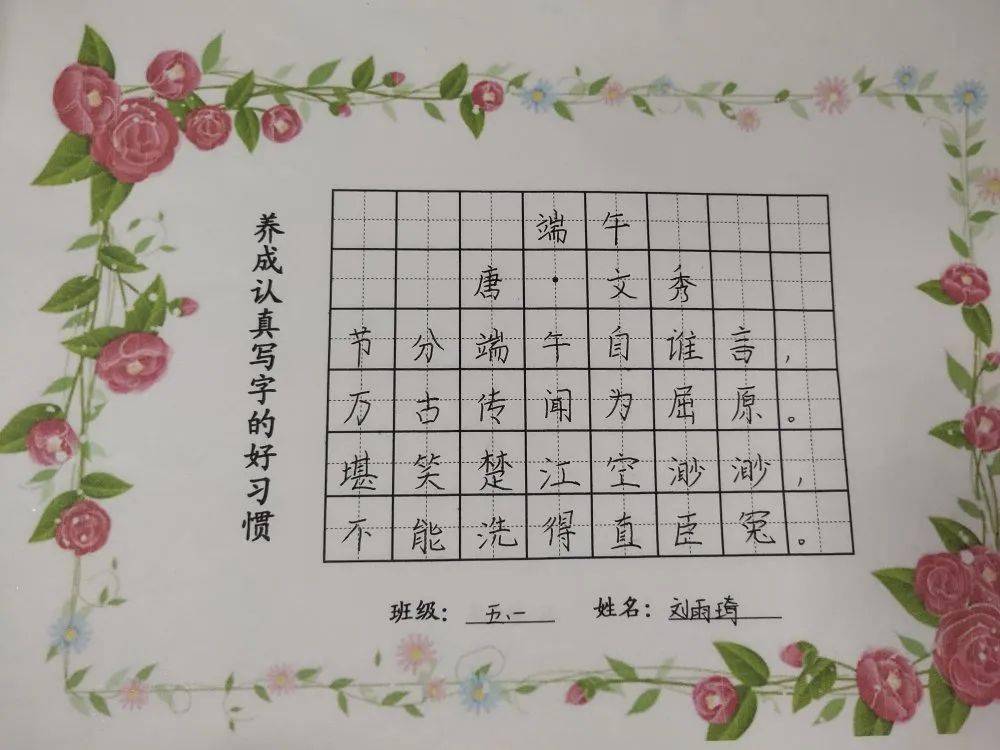 养成认真写字的好习惯
端午
唐·文秀
节分端午自谁言，
万古传闻为屈原。
堪笑楚江空渺渺，
不能洗得直臣冤。
班级：五、一 姓名：刘雨琦